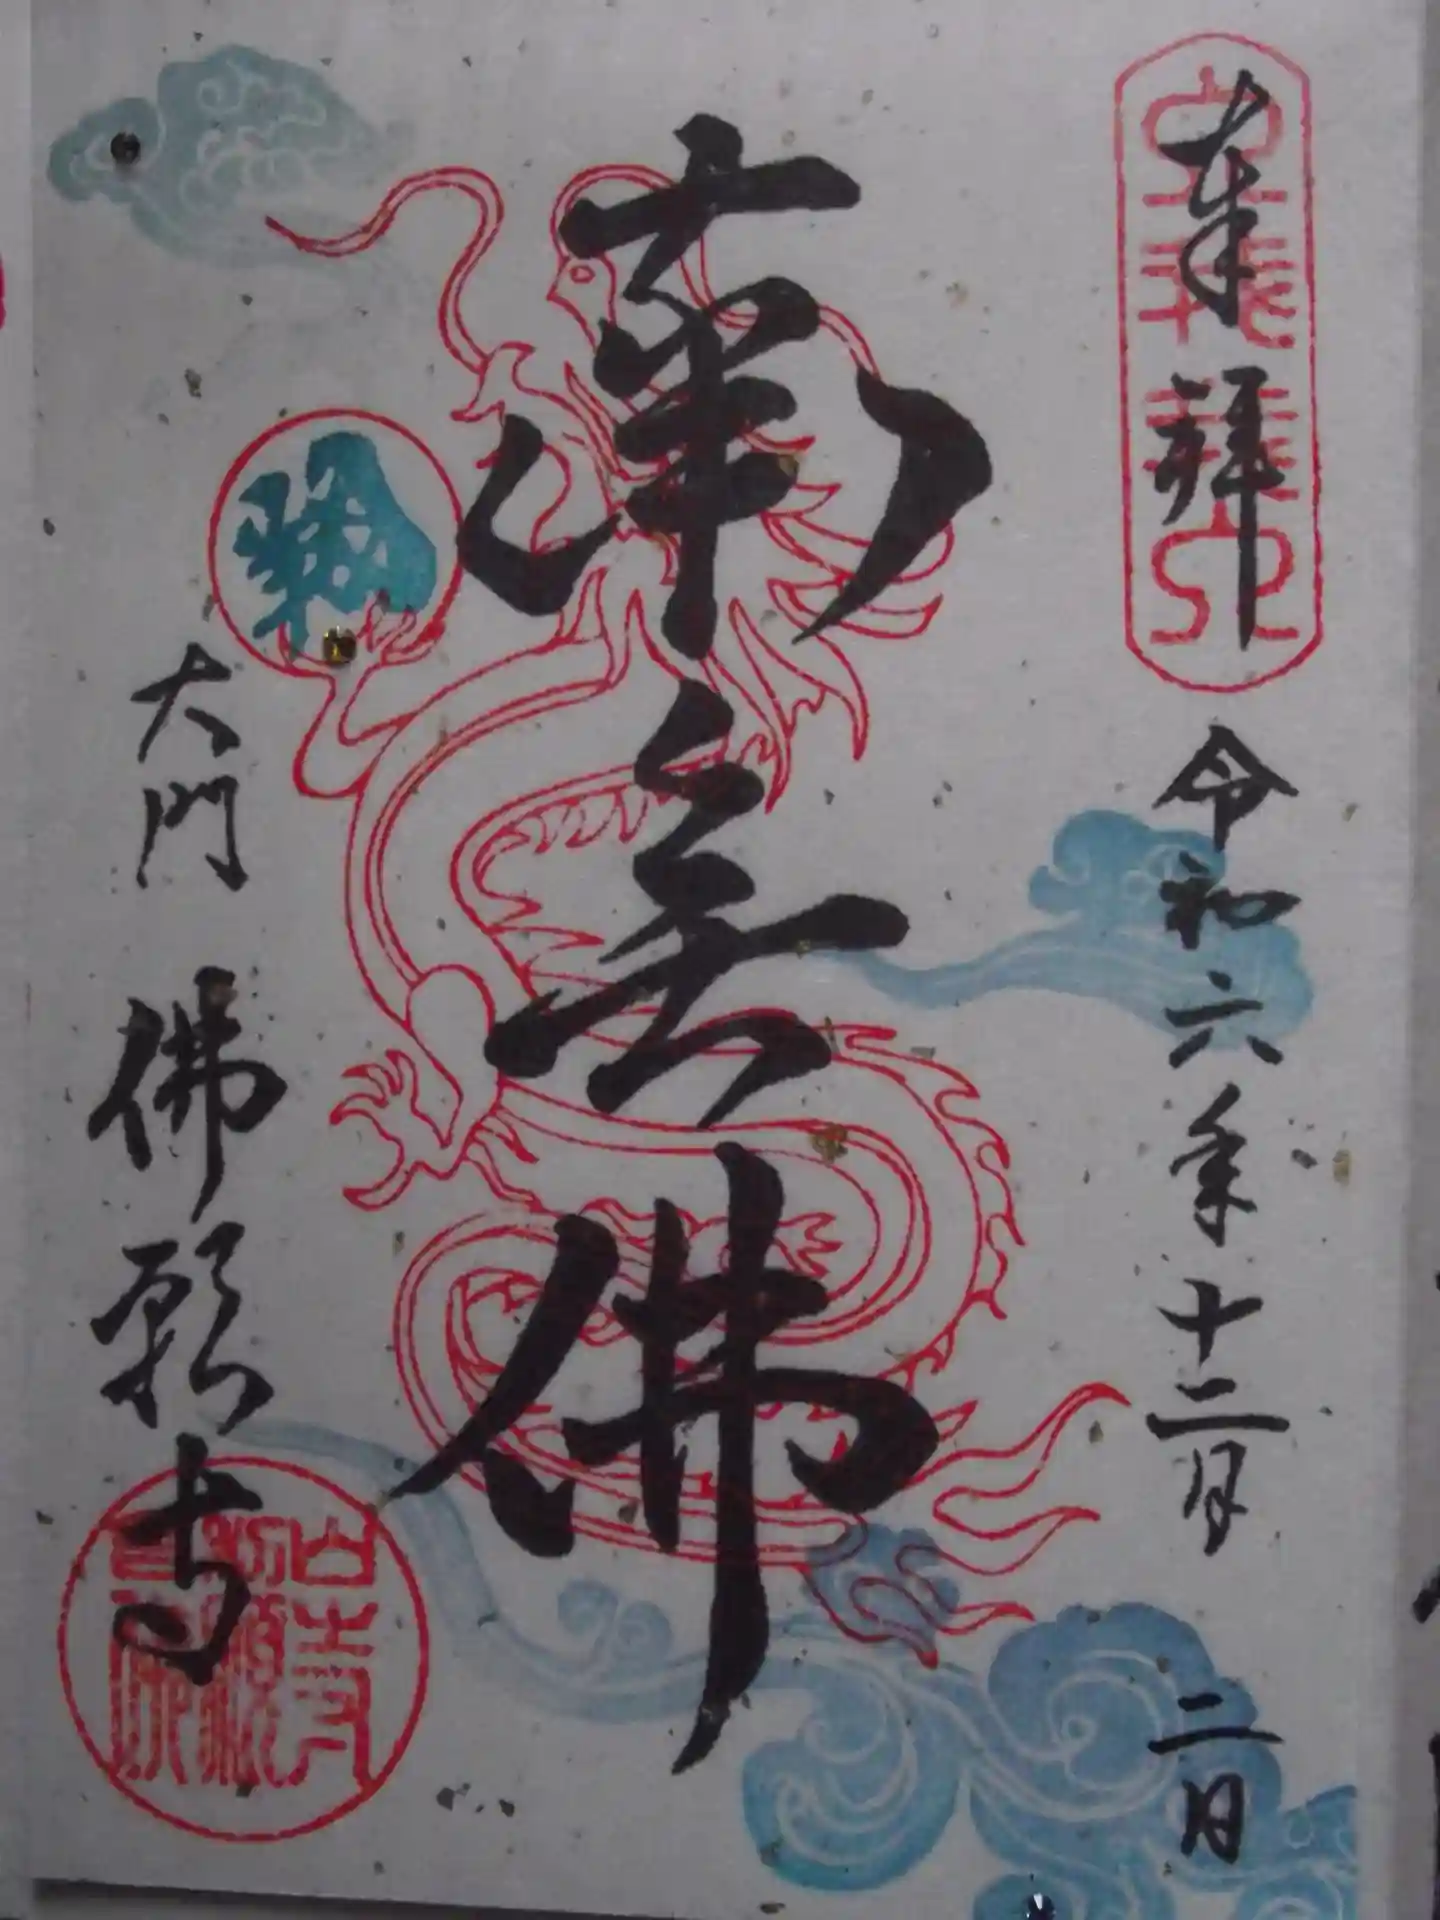 奉拝
令和六年十二月二日
南无佛
大門 佛願寺